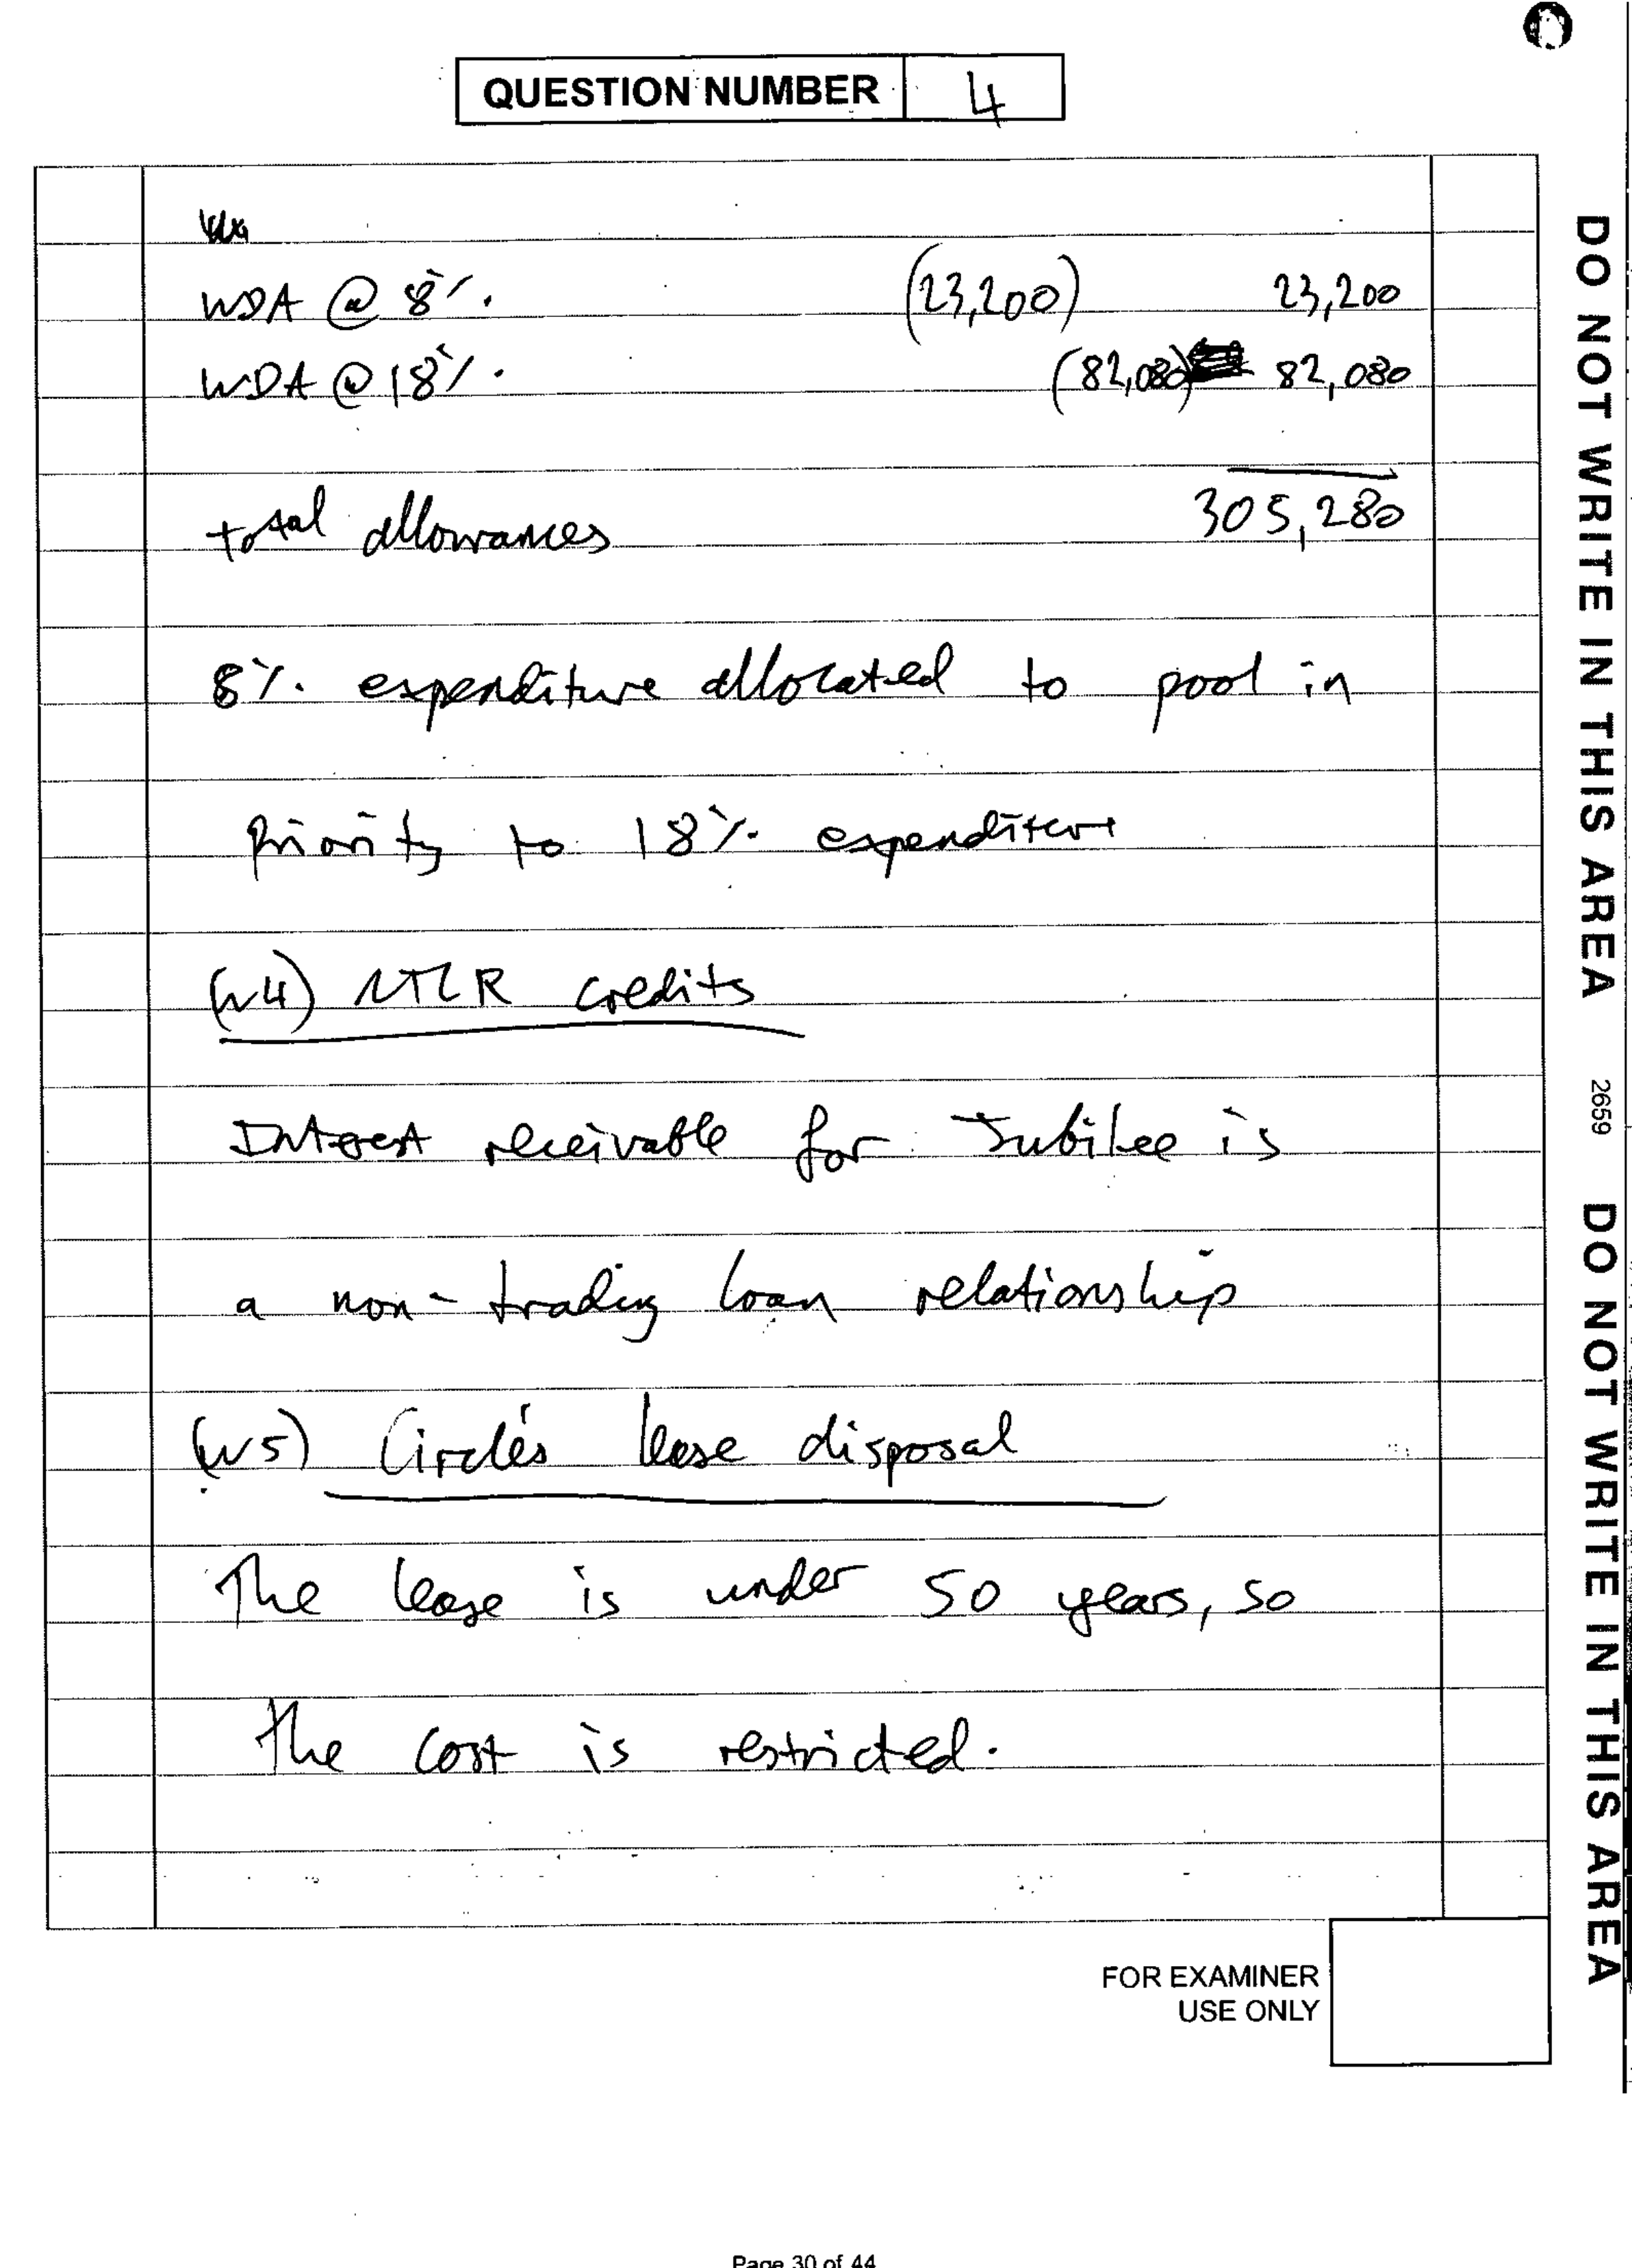 QUESTION NUMBER 4
WDA @ 8%. (23,200) 23,200
WDA @ 18%. (82,080) 82,080
total allowances 305,280
8%. expenditure allocated to pool in
Priority to 18%. expenditure
(W4) NTLR credits
Interest receivable for Jubilee is
a non-trading loan relationship
(W5) Circle's lease disposal
The lease is under 50 years, so
the cost is restricted.
FOR EXAMINER
USE ONLY
Page 30 of 44
DO NOT WRITE IN THIS AREA 2659 DO NOT WRITE IN THIS AREA